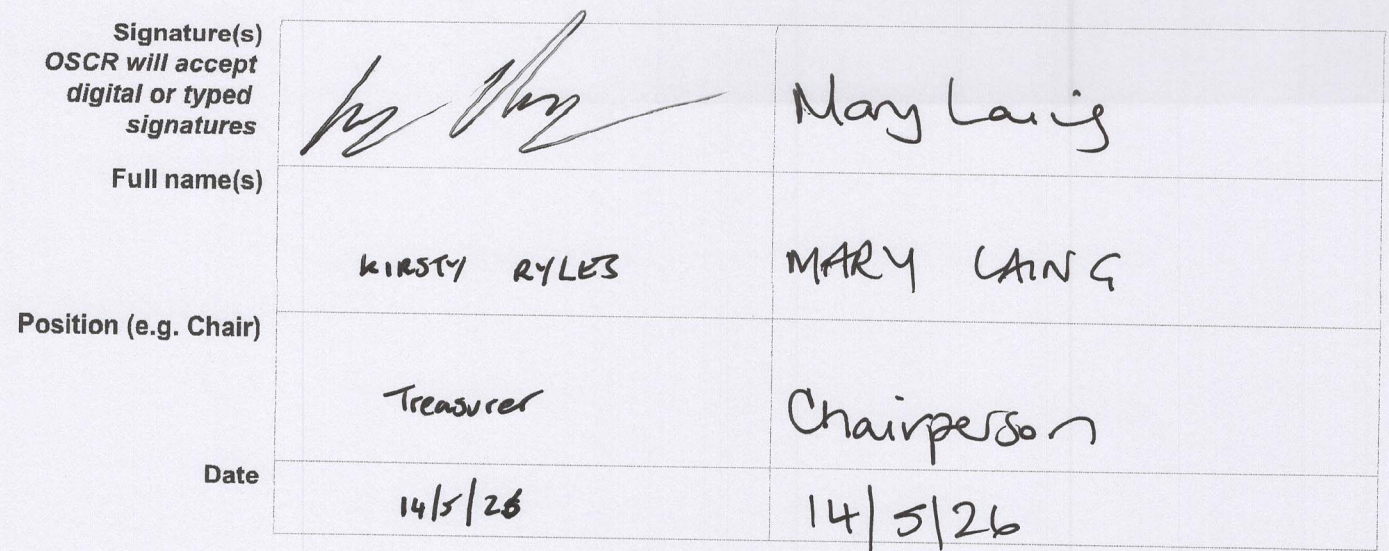 Signature(s)
OSCR will accept
digital or typed
signatures
Mary Laing
Full name(s)
KIRSTY RYLES
MARY LAING
Position (e.g. Chair)
Treasurer
Chairperson
Date
14/5/26
14/5/26